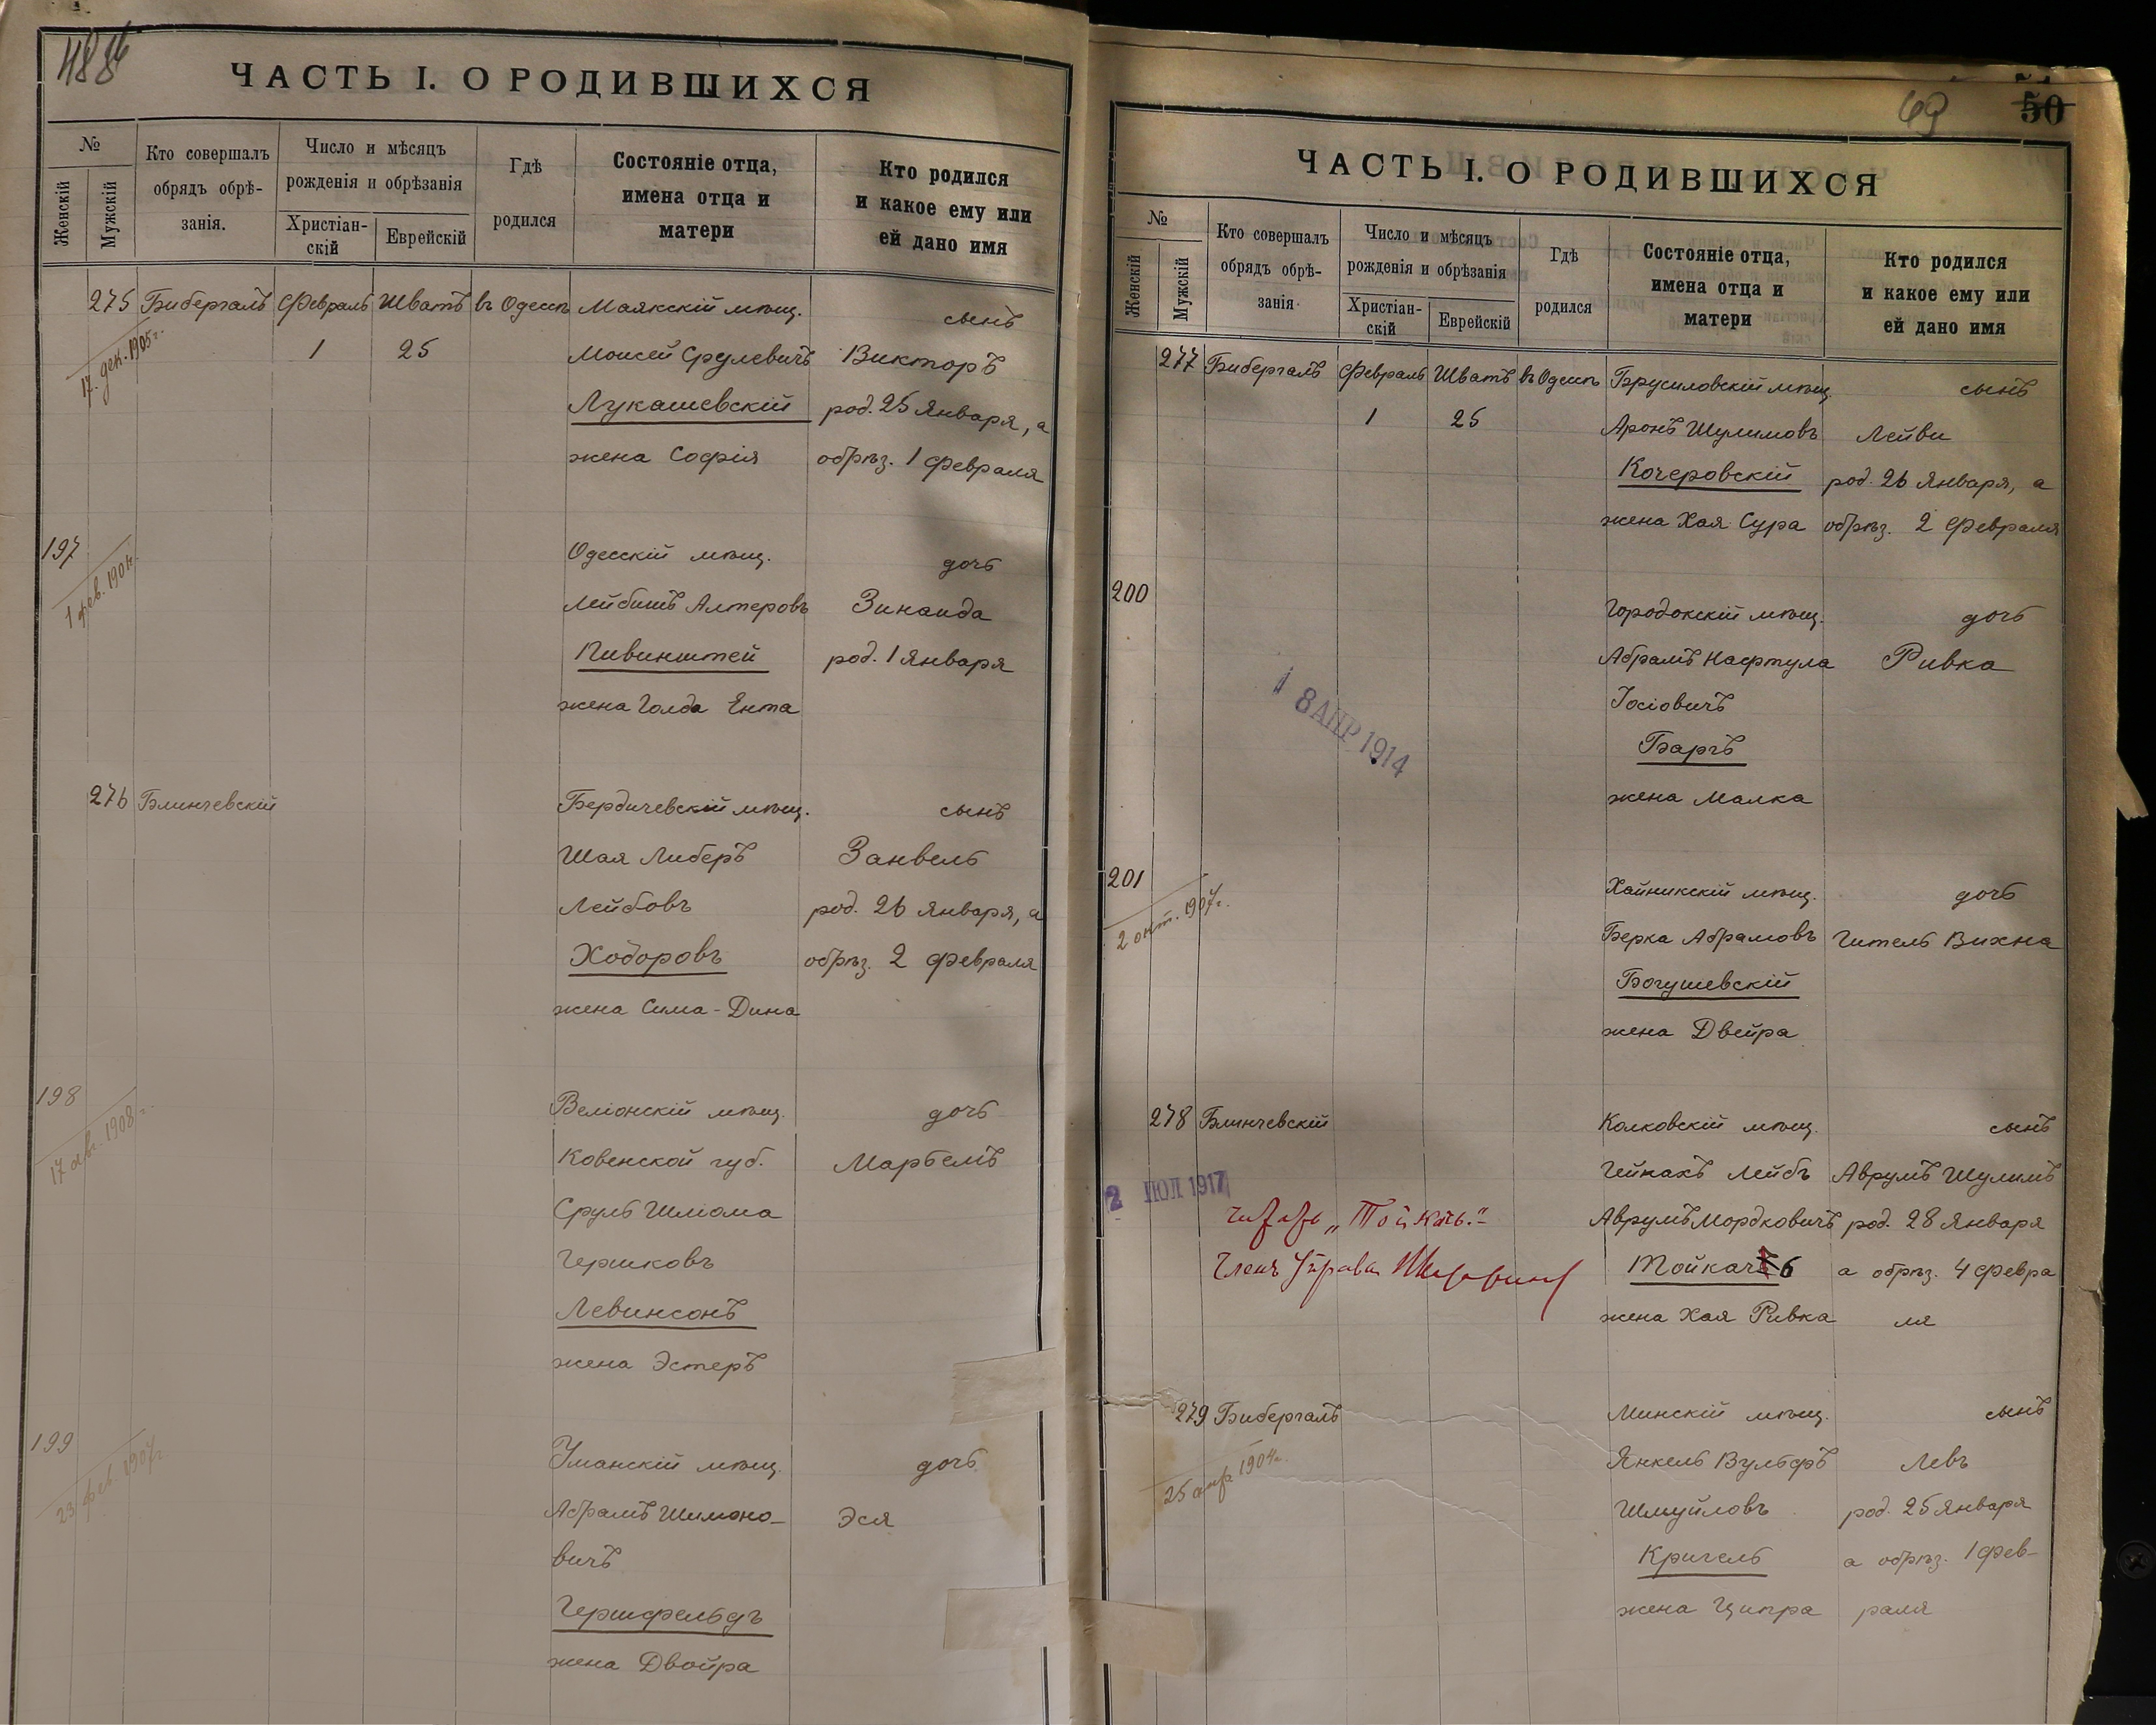 ЧАСТЬ I. О РОДИВШИХСЯ
№
Женскій
Мужскій
Кто совершалъ
обрядъ обрѣ-
занія.
Число и мѣсяцъ
рожденія и обрѣзанія
Христіан-
скій
Еврейскій
Гдѣ
родился
Состояніе отца,
имена отца и
матери
Кто родился
и какое ему или
ей дано имя
275 Бибергалъ Февраль Шватъ въ Одессѣ Маякскій мѣщ. сынъ
17. дек. 1905 г.
1 25 Моисей Срулевичъ Викторъ
Лукашевскій род. 25 Января, а
жена Софія обрѣз. 1 Февраля
197 Одесскій мѣщ. дочь
1 фев. 1904 г.
Лейбишъ Алтеровъ Зинаида
Пивинштей род. 1 Января
жена Голда Ента
276 Блинчевскій Бердичевский мѣщ. сынъ
Шая Либеръ Занвель
Лейбовъ род. 26 Января, а
Ходоровъ обрѣз. 2 Февраля
жена Сима-Дина
198 Веліонскій мѣщ. дочь
17 авг. 1908 г.
Ковенской губ. Марьемъ
Сруль Шліома
Гершковъ
Левинсонъ
жена Эстеръ
199 Уманскій мѣщ. дочь
23 фев. 1907 г.
Абрамъ Шимоно- Эся
вичъ
Гершфельдъ
жена Двойра
69 50
ЧАСТЬ I. О РОДИВШИХСЯ
№
Женскій
Мужскій
Кто совершалъ
обрядъ обрѣ-
занія
Число и мѣсяцъ
рожденія и обрѣзанія
Христіан-
скій
Еврейскій
Гдѣ
родился
Состояніе отца,
имена отца и
матери
Кто родился
и какое ему или
ей дано имя
277 Бибергалъ Февраль Шватъ въ Одессѣ Брусиловскій мѣщ. сынъ
1 25 Аронъ Шулимовъ Лейви
Кочеровскій род. 26 Января, а
жена Хая Сура обрѣз. 2 Февраля
200 Городокскій мѣщ. дочь
Абрамъ Нафтула Ривка
Іосіовичъ
18 АПР 1914
Баргъ
жена Малка
201 Хайникскій мѣщ. дочь
2 окт. 1907 г.
Берка Абрамовъ Гитель Вихна
Богушевскій
жена Двейра
278 Блинчевскій Колковскій мѣщ. сынъ
Гейнахъ Лейбъ Аврумъ Шулимъ
2 ІЮЛ 1917
Аврумъ Мордковичъ род. 28 Января
„Тойкачь.“
Членъ Управы
Тойкачь а обрѣз. 4 Февра
жена Хая Ривка ля
279 Бибергалъ Минскій мѣщ. сынъ
25 апр 1904 г.
Янкель Вульфъ Левъ
Шмуйловъ род. 25 Января
Кригель а обрѣз. 1 Фев-
жена Ципра раля